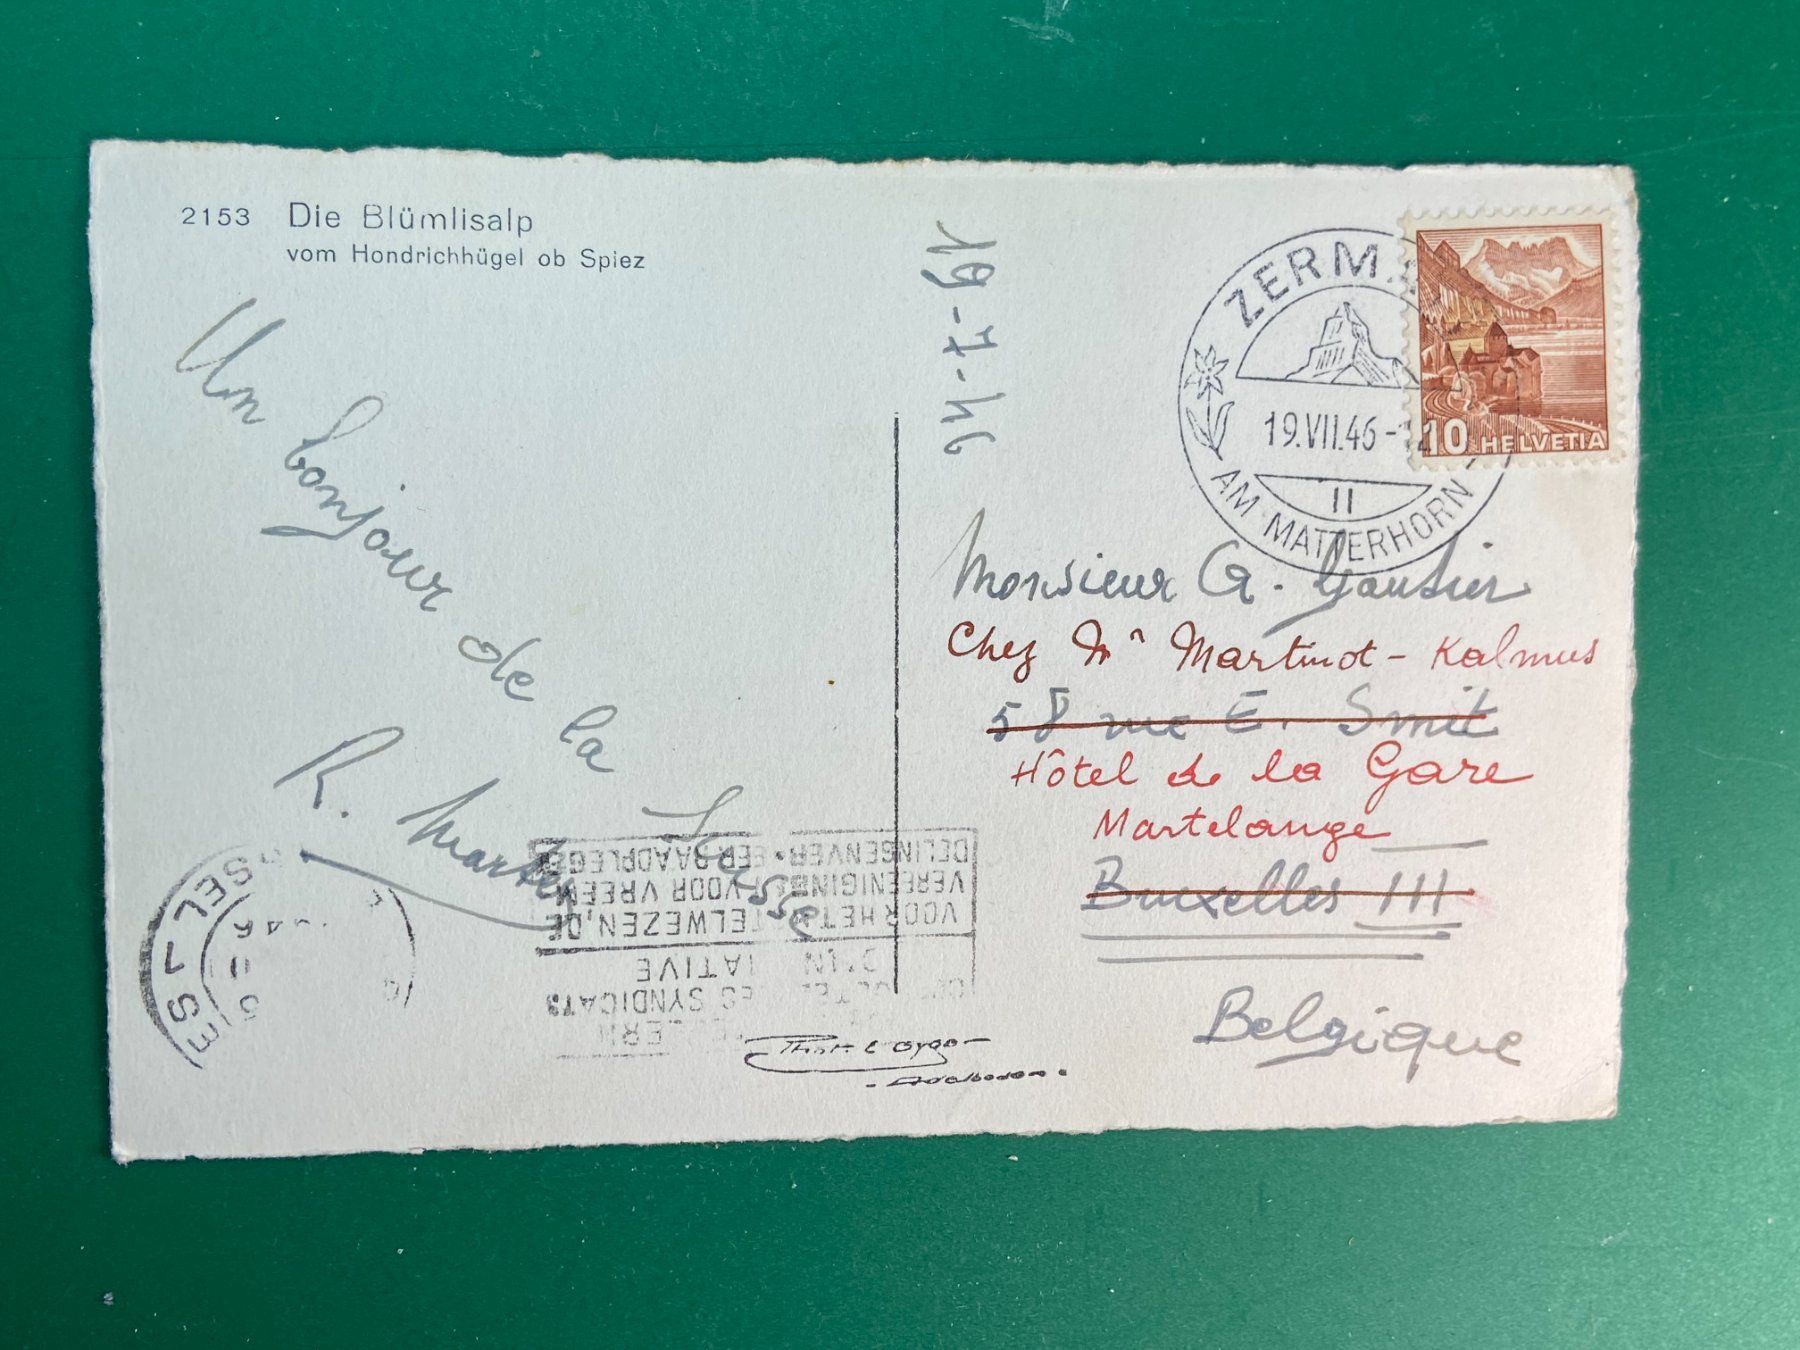 2153 Die Blümlisalp
vom Hondrichhügel ob Spiez
Un bonjour de la Suisse
R.
19-7-46
ZERMATT
19.VII.46-12
II
AM MATTERHORN
10 HELVETIA
Monsieur G. Gautier
Chez Mr Martinot - Kalmus
58 rue E. Smit
Hôtel de la Gare
Martelange
Bruxelles III
Belgique
VOOR HET HOTELWEZEN, DE
VEREENIGING VOOR VREEM
DELINGENVERKEER RAADPLEGEN
SYNDICATS
D'INITIATIVE